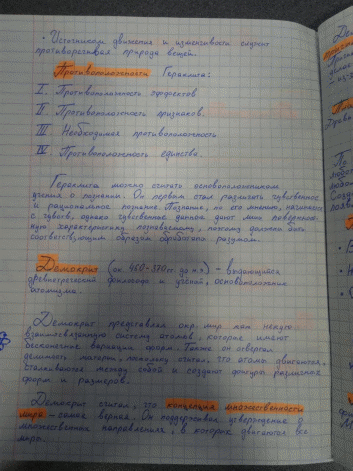 • Источником движения и изменчивости служит
противоречивая природа вещей.
Противоположности Гераклита:
I. Противоположность эффектов
II. Противоположность признаков.
III. Необходимая противоположность
IV. Противоположность единства.
Гераклита можно считать основоположником
учения о познании. Он первым стал различать чувственное
и рациональное познание. Познание, по его мнению, начинается
с чувств, однако чувственные данные дают лишь поверхност-
ную характеристику познаваемого, поэтому должны быть
соответствующим образом обработаны разумом.
Демокрит (ок. 460-370 гг. до н.э) - выдающийся
древнегреческий философ и учёный, основоположник
атомизма.
Демокрит представлял окр. мир как некую
взаимосвязанную систему атомов, которые имеют
бесконечные вариации форм. Также он отвергал
делимость материи, поскольку считал, что атомы двигаются,
сталкиваются между собой и создают фигуры различных
форм и размеров.
Демокрит считал, что концепция множественности
мира - самая верная. Он поддерживал утверждение о
множественном направлении, в котором двигаются все
миры.